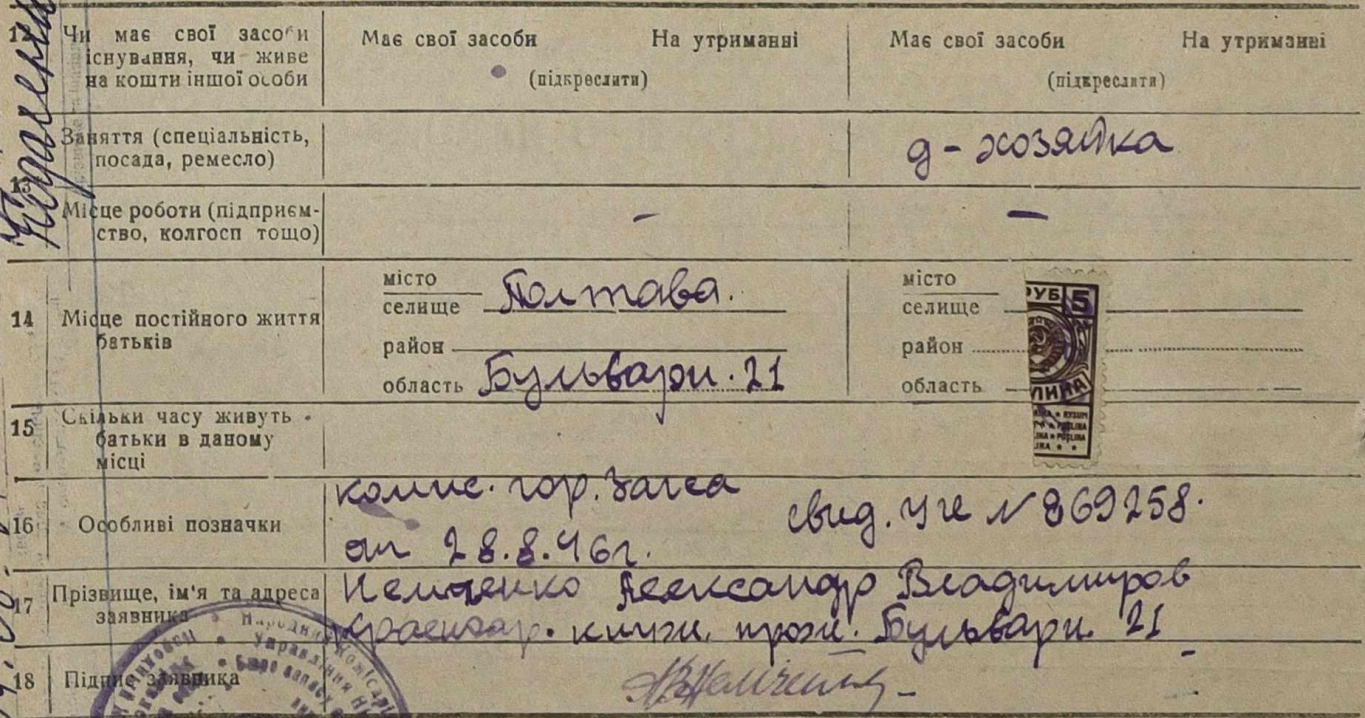 12 Чи має свої засоби існування, чи живе на кошти іншої особи
Має свої засоби На утриманні
(підкреслити)
Має свої засоби На утриманні
(підкреслити)
13
Заняття (спеціальність, посада, ремесло)
д - хозяйка
Місце роботи (підприєм-
ство, колгосп тощо)
- -
14 Місце постійного життя
батьків
місто
селище Полтава.
район
область Бульварн. 21
місто
селище
район
область
РУБ 5
15 Скільки часу живуть
батьки в даному
місці
16 Особливі позначки
комис. гор. Загса
от 28.8.46г.
свид. УЧ N 869258.
17 Прізвище, ім'я та адреса
заявника
Немченко Александр Владимиров
Краснозар. книжк. прож. Бульварн. 21
18 Підпис заявника